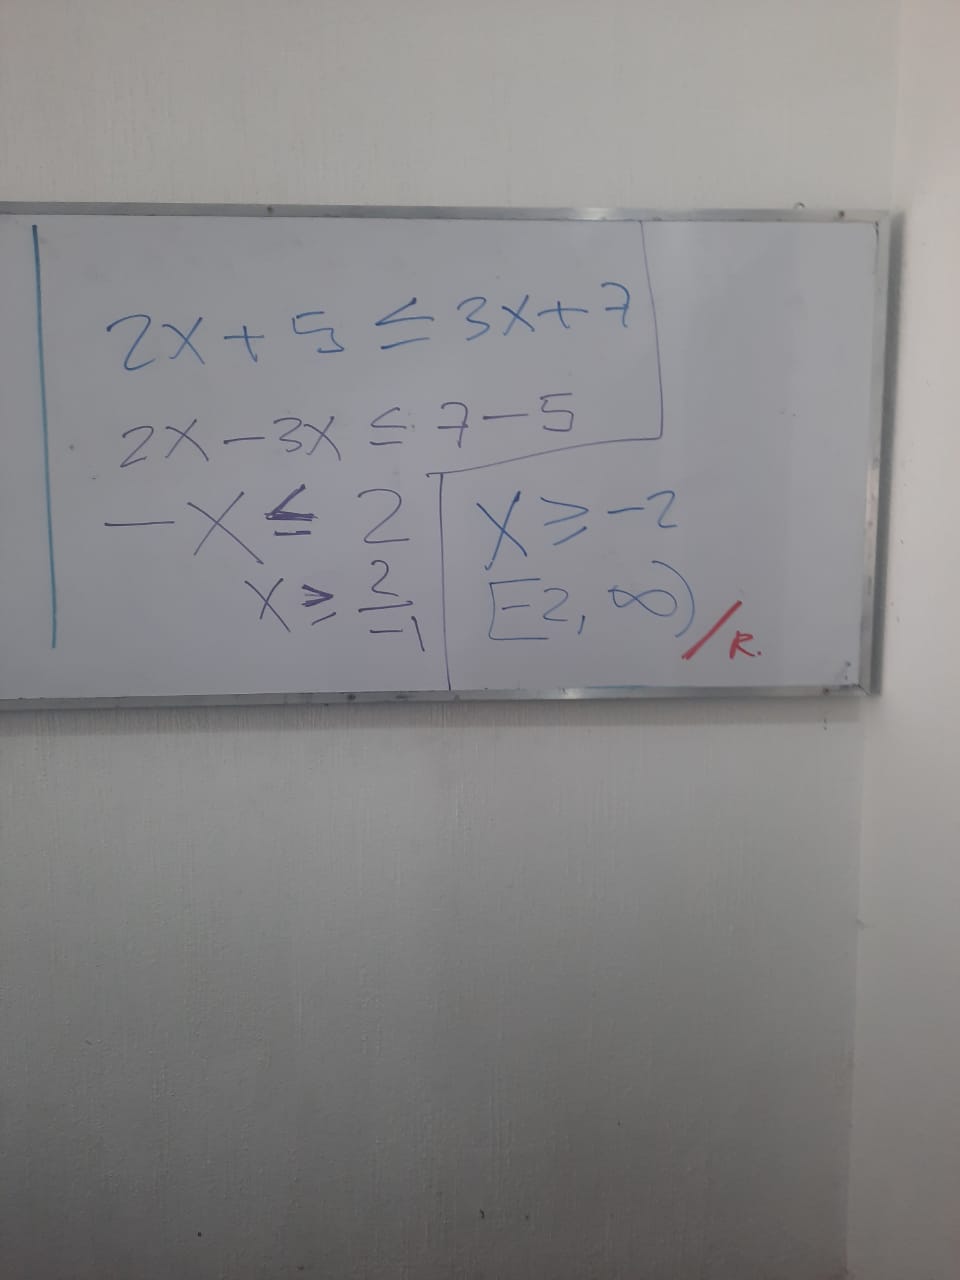 2x + 5 ≤ 3x + 7
2x - 3x ≤ 7 - 5
-x ≤ 2
x ≥ 2/-1
x ≥ -2
[-2, ∞) / R.